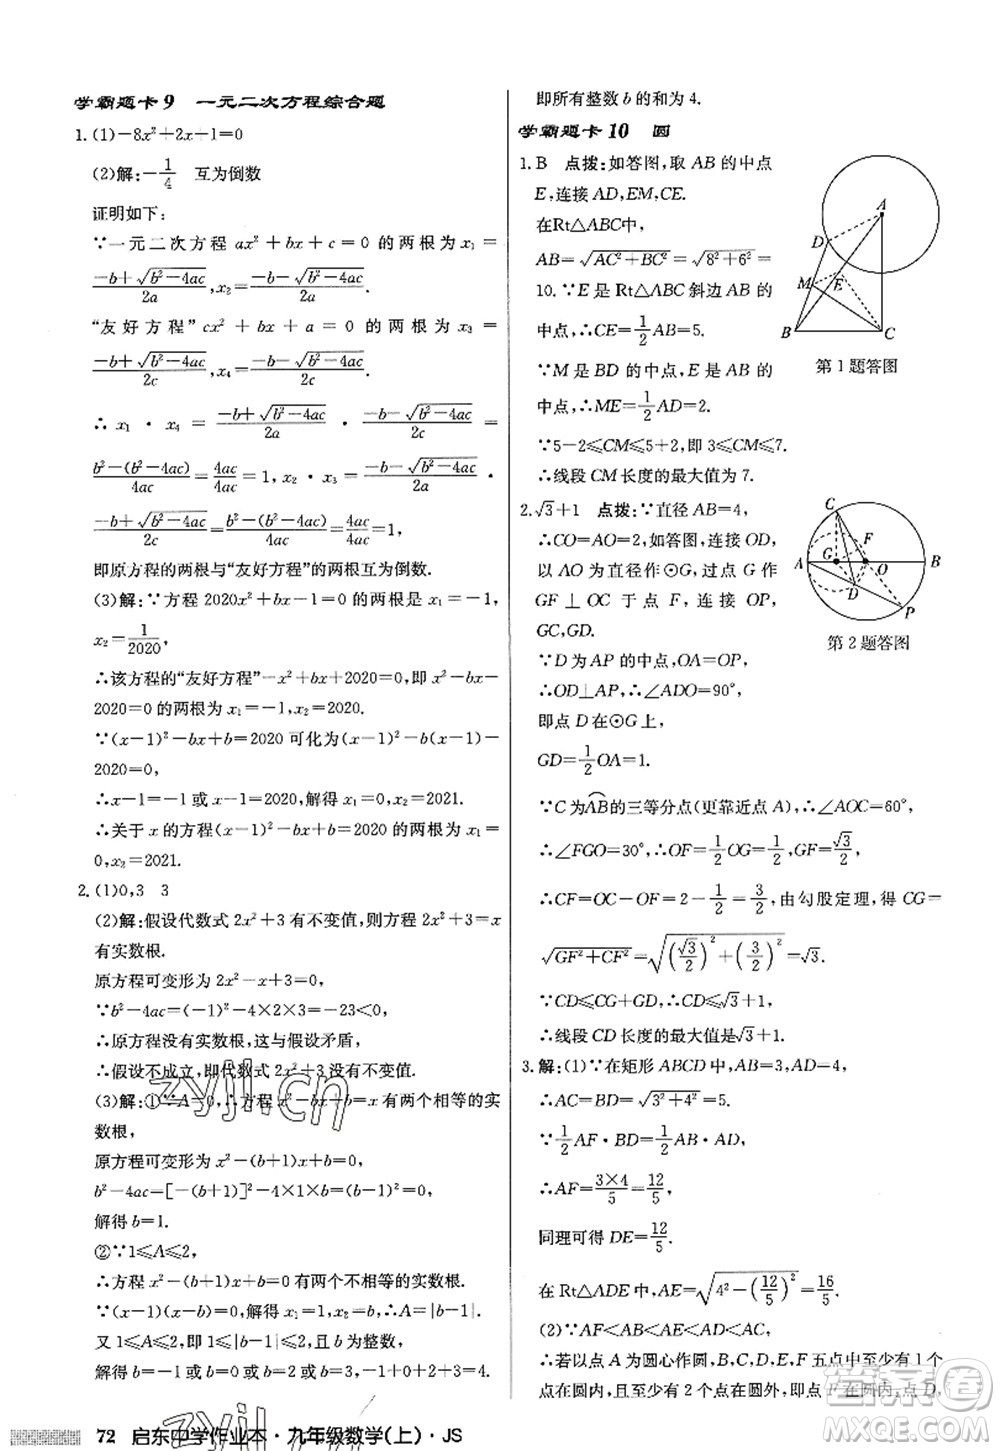 学霸题卡 9　一元二次方程综合题
1. (1)-8x²+2x+1=0
(2)解:-1/4　互为倒数
证明如下:
∵一元二次方程 ax²+bx+c=0 的两根为 x₁=
(-b+√(b²-4ac))/2a, x₂=(-b-√(b²-4ac))/2a.
“友好方程”cx²+bx+a=0 的两根为 x₃=
(-b+√(b²-4ac))/2c, x₄=(-b-√(b²-4ac))/2c.
∴ x₁ · x₄ = (-b+√(b²-4ac))/2a · (-b-√(b²-4ac))/2c =
(b²-(b²-4ac))/4ac=4ac/4ac=1, x₂ · x₃=(-b-√(b²-4ac))/2a ·
(-b+√(b²-4ac))/2c=(b²-(b²-4ac))/4ac=4ac/4ac=1,
即原方程的两根与“友好方程”的两根互为倒数.
(3)解:∵方程 2020x²+bx-1=0 的两根是 x₁=-1,
x₂=1/2020,
∴该方程的“友好方程”-x²+bx+2020=0,即 x²-bx-
2020=0 的两根为 x₁=-1,x₂=2020.
∵(x-1)²-bx+b=2020 可化为(x-1)²-b(x-1)-
2020=0,
∴x-1=-1 或 x-1=2020,解得 x₁=0,x₂=2021.
∴关于 x 的方程(x-1)²-bx+b=2020 的两根为 x₁=
0,x₂=2021.
2. (1)0,3　3
(2)解:假设代数式 2x²+3 有不变值,则方程 2x²+3=x
有实数根.
原方程可变形为 2x²-x+3=0,
∵b²-4ac=(-1)²-4×2×3=-23<0,
∴原方程没有实数根,这与假设矛盾,
∴假设不成立,即代数式 2x²+3 没有不变值.
(3)解:①∵A=0,∴方程 x²-bx+b=x 有两个相等的实
数根,
原方程可变形为 x²-(b+1)x+b=0,
b²-4ac=[-(b+1)]²-4×1×b=0,
解得 b=1.
②∵1≤A≤2,
∴方程 x²-(b+1)x+b=0 有两个不相等的实数根.
∵(x-1)(x-b)=0,解得 x₁=1,x₂=b,∴A=|b-1|.
又 1≤A≤2,即 1≤|b-1|≤2,且 b 为整数,
解得 b=-1,b=0,b=2,b=3,-1+0+2+3=4.
72　启东中学作业本·九年级数学(上)·JS
即所有整数 b 的和为 4.
学霸题卡 10　圆
1. B　点拨:如答图,取 AB 的中点
E,连接 AD,EM,CE.
在Rt△ABC中,
AB=√(AC²+BC²)=√(8²+6²)=
10. ∵E 是 Rt△ABC 斜边 AB 的
中点,∴CE=1/2AB=5.
∵M 是 BD 的中点,E 是 AB 的
中点,∴ME=1/2AD=2.
∵5-2≤CM≤5+2,即 3≤CM≤7.
∴线段 CM 长度的最大值为 7.
A
D
M
E
B
C
第1题答图
2. √3+1　点拨:∵直径 AB=4,
∴CO=AO=2,如答图,连接 OD,
以 AO 为直径作⊙G,过点 G 作
GF⊥OC 于点 F,连接 OP,
GC,GD.
∵D 为 AP 的中点,OA=OP,
∴OD⊥AP,∴∠ADO=90°,
即点 D 在⊙G 上,
GD=1/2OA=1.
C
G
F
A
O
B
D
P
第2题答图
∵C 为AB的三等分点(更靠近点 A),∴∠AOC=60°,
∴∠FGO=30°,∴OF=1/2OG=1/2,GF=√3/2,
∴CF=OC-OF=2-1/2=3/2,由勾股定理,得 CG=
√(GF²+CF²)=√((√3/2)²+(3/2)²)=√3.
∵CD≤CG+GD,∴CD≤√3+1.
∴线段 CD 长度的最大值是√3+1.
3. 解:(1)∵在矩形 ABCD 中,AB=3,AD=4,
∴AC=BD=√(3²+4²)=5.
∵1/2AF·BD=1/2AB·AD,
∴AF=(3×4)/5=12/5,
同理可得 DE=12/5.
在 Rt△ADE 中,AE=√(4²-(12/5)²)=16/5.
(2)∵AF<AB<AE<AD<AC,
∴若以点 A 为圆心作圆,B,C,D,E,F 五点中至少有 1 个
点在圆内,且至少有 2 个点在圆外,即点 F 在圆内,点 D,
zyjl.cn
zyjl.cn
答案圈
MXQE.COM